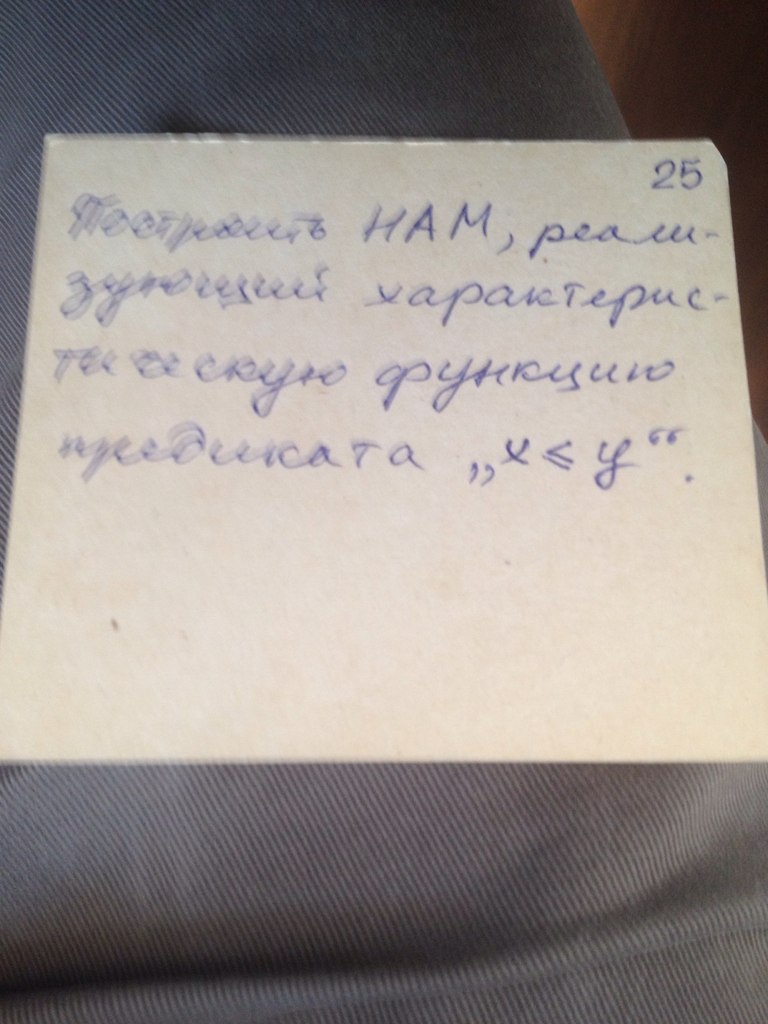 25
Построить НАМ, реали-
зующий характерис-
тическую функцию
предиката „x ⩽ y“.